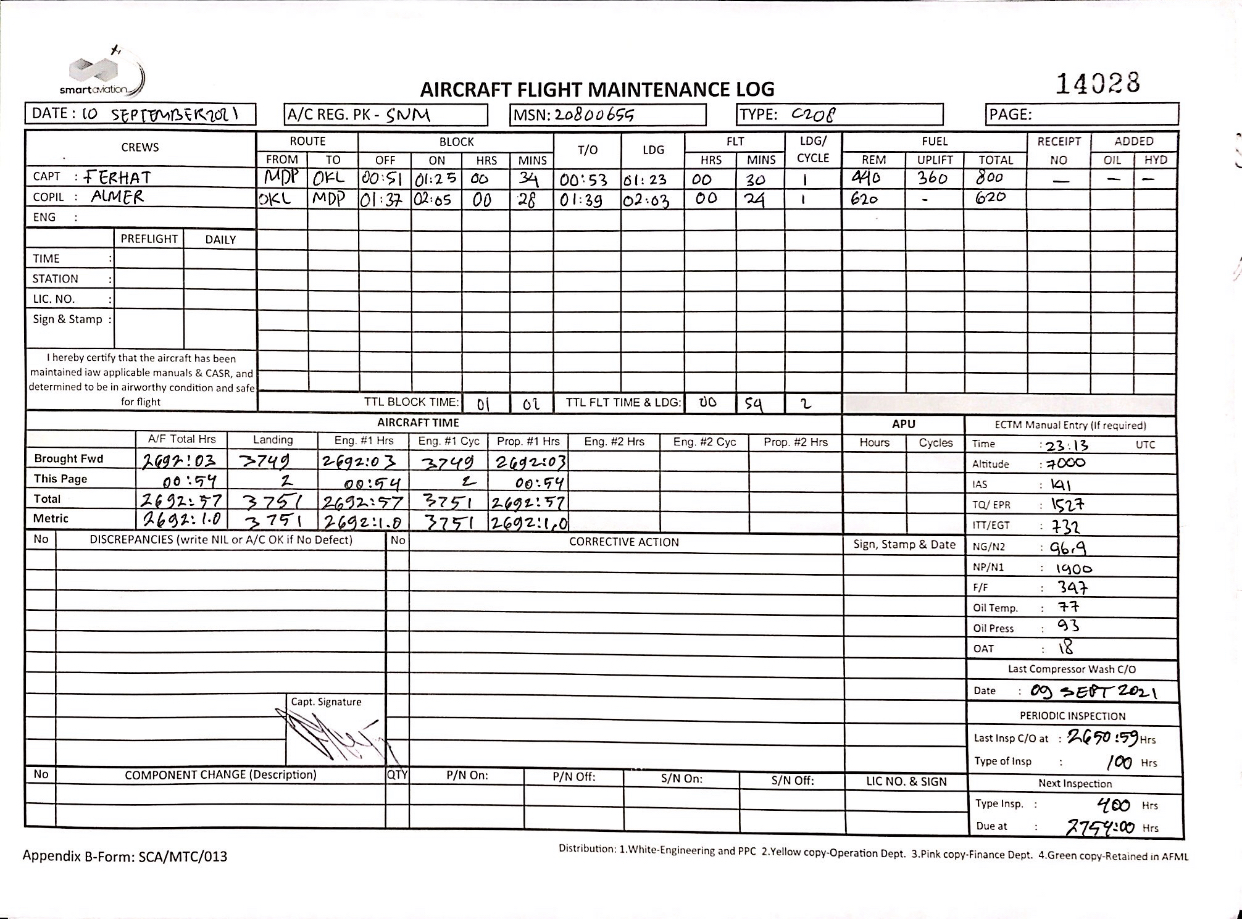 smartaviation
AIRCRAFT FLIGHT MAINTENANCE LOG
14028
DATE : 10 SEPTEMBER 2021 A/C REG. PK - SNM MSN: 20800655 TYPE: C208 PAGE:
CREWS ROUTE BLOCK T/O LDG FLT LDG/ CYCLE FUEL RECEIPT NO ADDED
FROM TO OFF ON HRS MINS HRS MINS REM UPLIFT TOTAL OIL HYD
CAPT : FERHAT MDP OKL 00:51 01:25 00 34 00:53 01:23 00 30 1 440 360 800 — — —
COPIL : ALMER OKL MDP 01:37 02:05 00 28 01:39 02:03 00 24 1 620 - 620
ENG :
PREFLIGHT DAILY
TIME :
STATION :
LIC. NO. :
Sign & Stamp :
I hereby certify that the aircraft has been
maintained iaw applicable manuals & CASR, and
determined to be in airworthy condition and safe
for flight
TTL BLOCK TIME: 01 02 TTL FLT TIME & LDG: 00 54 2
AIRCRAFT TIME APU ECTM Manual Entry (If required)
A/F Total Hrs Landing Eng. #1 Hrs Eng. #1 Cyc Prop. #1 Hrs Eng. #2 Hrs Eng. #2 Cyc Prop. #2 Hrs Hours Cycles Time : 23:13 UTC
Brought Fwd 2692:03 3749 2692:03 3749 2692:03 Altitude : 7000
This Page 00:54 2 00:54 2 00:54 IAS : 141
Total 2692:57 3751 2692:57 3751 2692:57 TQ/ EPR : 1527
Metric 2692:1.0 3751 2692:1.0 3751 2692:1.0 ITT/EGT : 732
No DISCREPANCIES (write NIL or A/C OK if No Defect) No CORRECTIVE ACTION Sign, Stamp & Date NG/N2 : 96.9
NP/N1 : 1900
F/F : 347
Oil Temp. : 77
Oil Press : 93
OAT : 18
Last Compressor Wash C/O
Date : 09 SEPT 2021
Capt. Signature
PERIODIC INSPECTION
Last Insp C/O at : 2650:59 Hrs
Type of Insp : 100 Hrs
No COMPONENT CHANGE (Description) QTY P/N On: P/N Off: S/N On: S/N Off: LIC NO. & SIGN Next Inspection
Type Insp. : 400 Hrs
Due at : 2754:00 Hrs
Appendix B-Form: SCA/MTC/013
Distribution: 1.White-Engineering and PPC 2.Yellow copy-Operation Dept. 3.Pink copy-Finance Dept. 4.Green copy-Retained in AFML